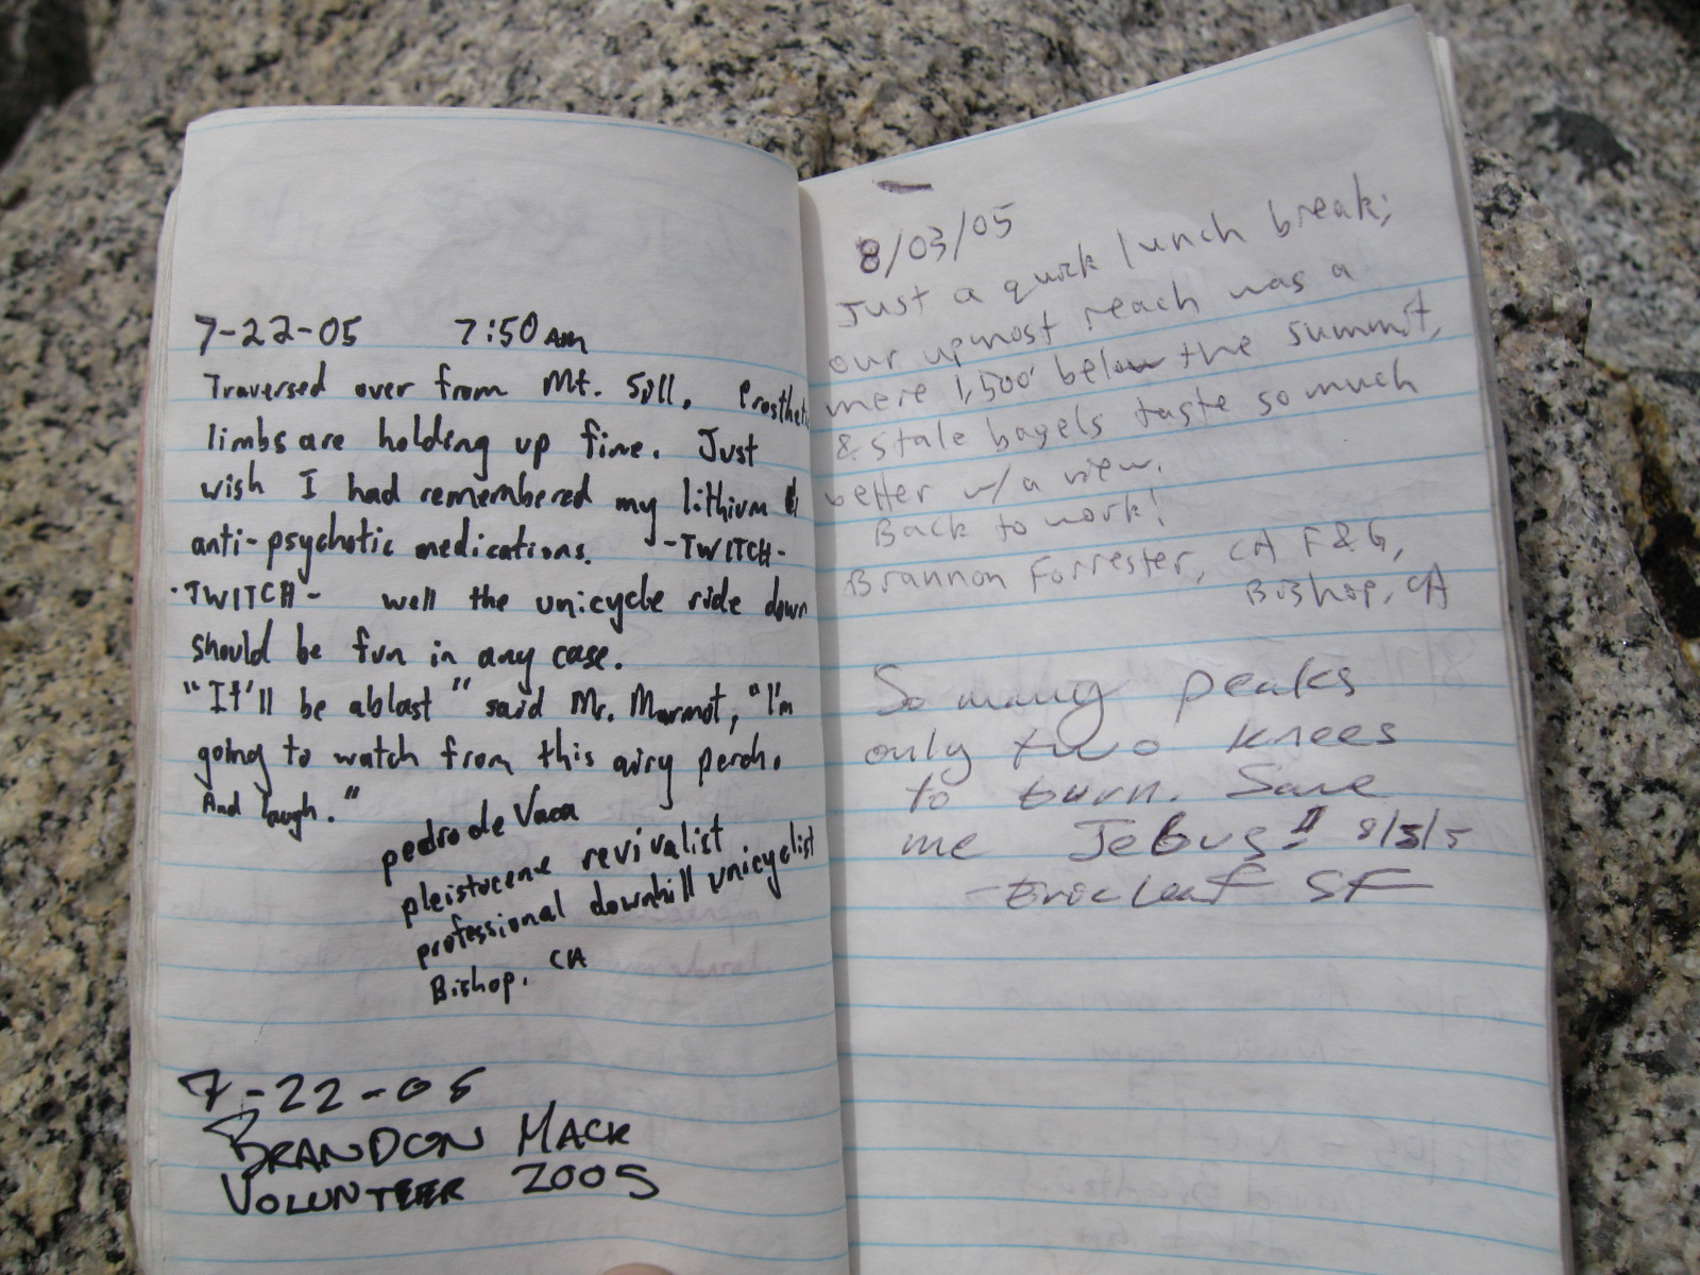 7-22-05 7:50 AM
Traversed over from Mt. Sill. Prosthetic
limbs are holding up fine. Just
wish I had remembered my lithium &
anti-psychotic medications. -TWITCH-
·TWITCH- well the unicycle ride down
should be fun in any case.
"It'll be a blast" said Mr. Marmot, "I'm
going to watch from this airy perch.
And laugh."
pedro de Vaca
pleistocene revivalist
professional downhill unicyclist
Bishop, CA
7-22-05
BRANDON MACK
VOLUNTEER 2005
8/03/05
Just a quick lunch break;
our upmost reach was a
mere 1,500' below the summit,
& stale bagels taste so much
better w/ a view.
Back to work!
Brannon Forrester, CA F&G,
Bishop, CA
So many peaks
only two knees
to burn. Save
me Jebus!! 8/3/5
- Eric Leaf SF